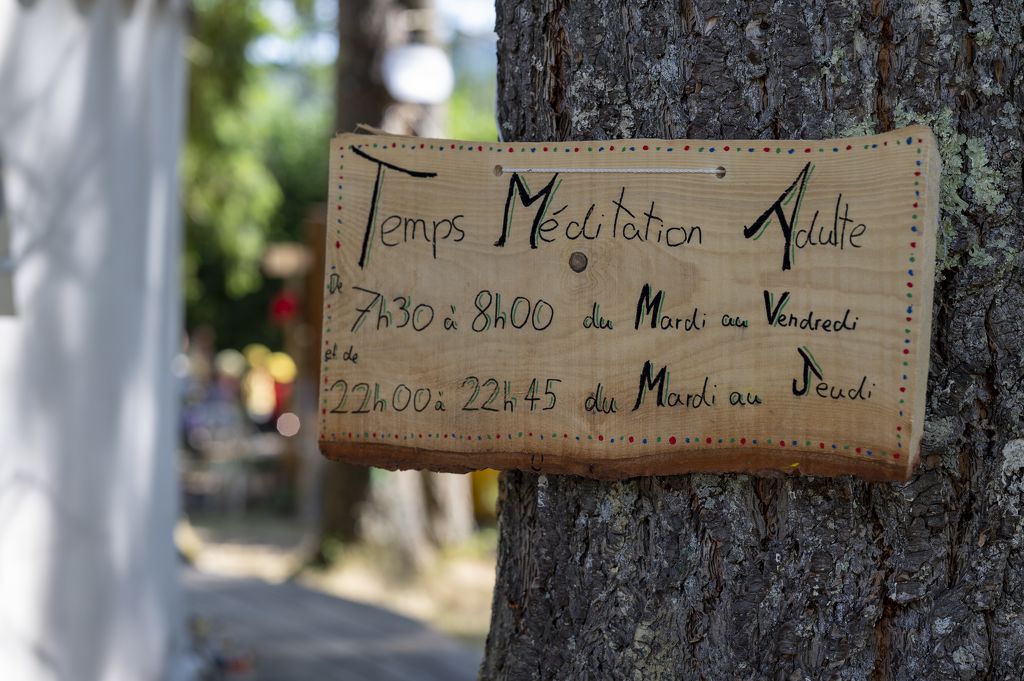 Temps Méditation Adulte
De
7h30 à 8h00 du Mardi au Vendredi
et de
22h00 à 22h45 du Mardi au Jeudi